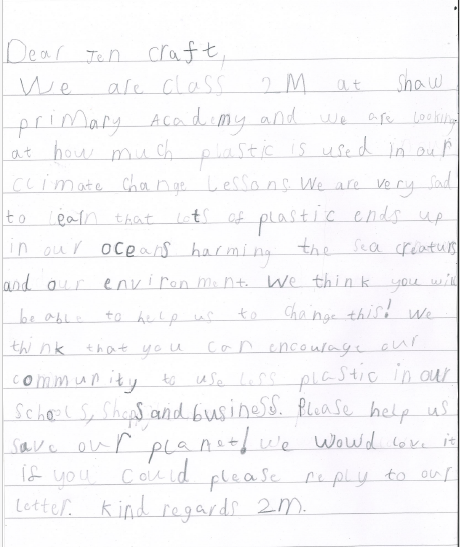 Dear Jen craft,
We are class 2M at Shaw
primary Academy and we are looking
at how much plastic is used in our
climate change Lessons. We are very sad
to learn that lots of plastic ends up
in our oceans harming the sea creaturs
and our environment. We think you will
be able to help us to change this! We
think that you can encourage our
community to use less plastic in our
Schools, Shops and business. Please help us
save our planet! We would love it
if you could please reply to our
letter. Kind regards 2M.